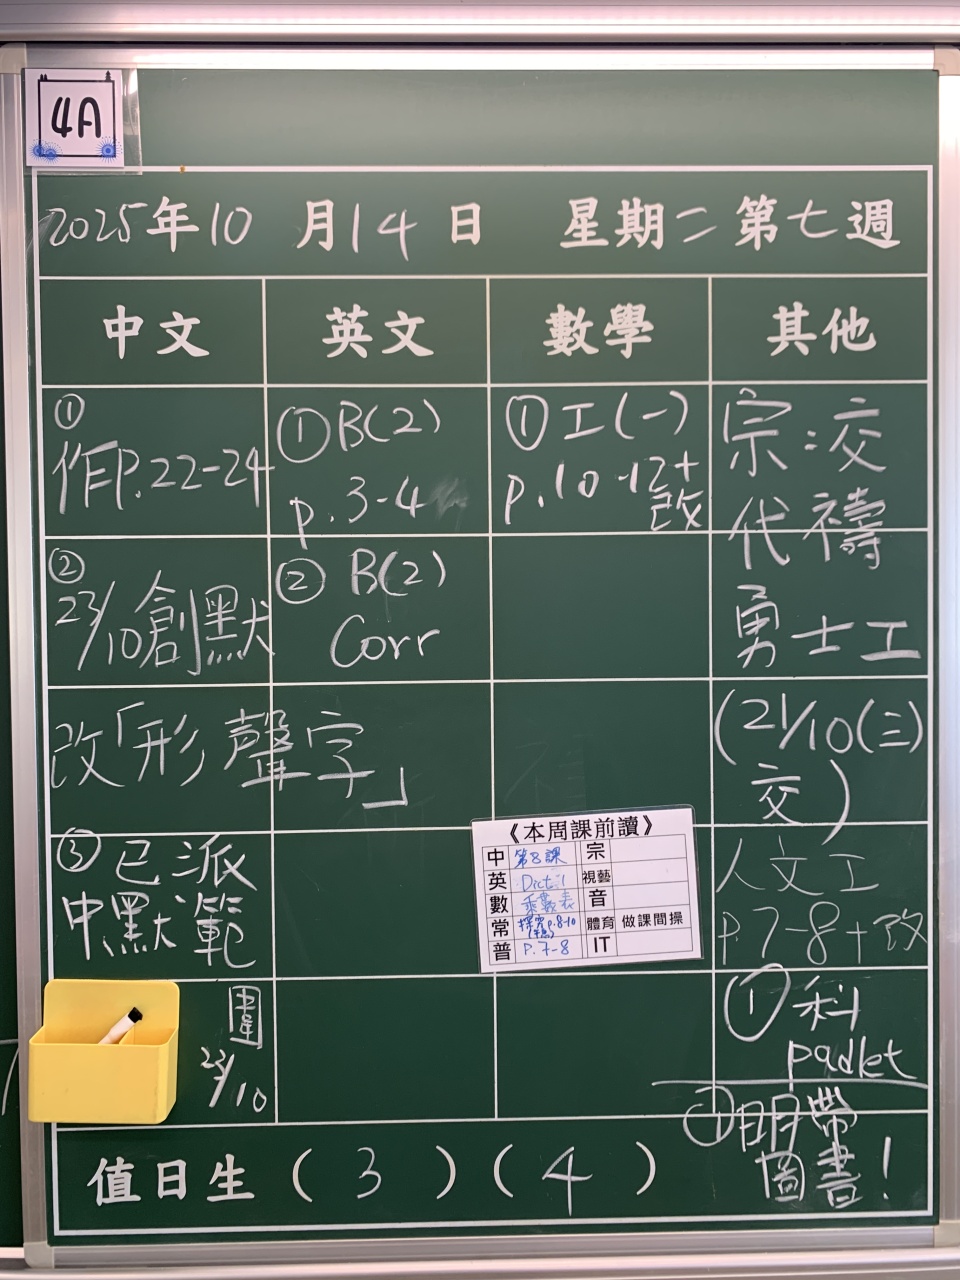 4A
2025年10月14日 星期二第七週
中文 英文 數學 其他
①
作P.22-24
②
23/10創默
改「形聲字」
③已派
中默範
圍
23/10
①B(2)
p.3-4
② B(2)
Corr
①工(一)
p.10-12+
改
宗:交
代禱
勇士工
(21/10(三)
交)
人文工
p.7-8+改
①科
padlet
①明帶
圖書!
《本周課前讀》
中 第8課 宗
英 Dict 1 視藝
數 乘數表 音
常 探究p.8-10 體育 做課間操
普 P.7-8 IT
值日生(3)(4)